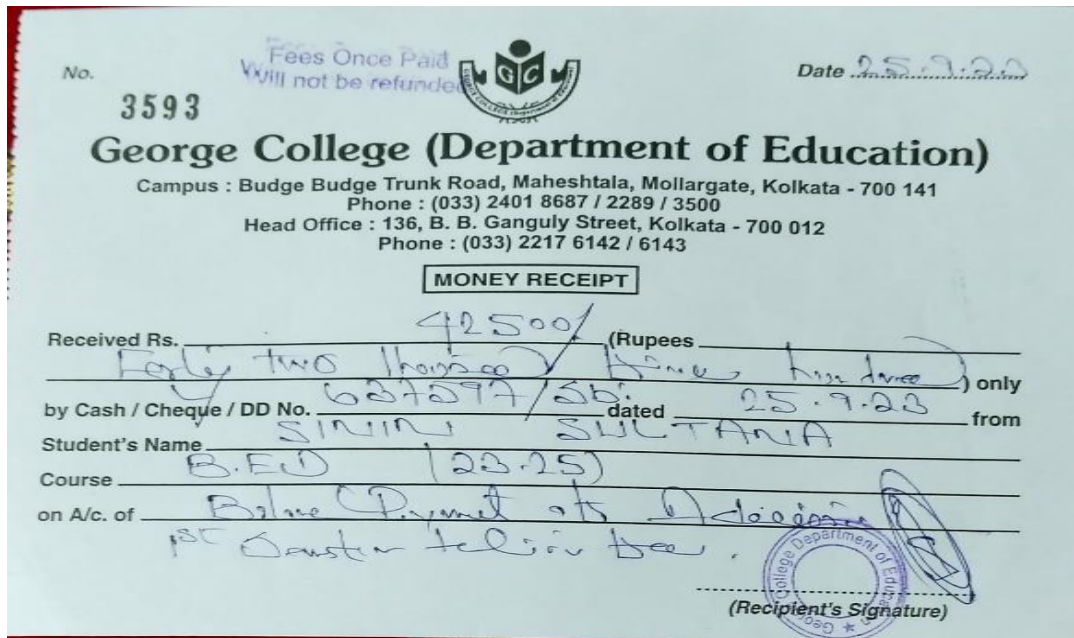 No.
3593
Fees Once Paid
Will not be refunded
GC
Date 25.9.23
George College (Department of Education)
Campus : Budge Budge Trunk Road, Maheshtala, Mollargate, Kolkata - 700 141
Phone : (033) 2401 8687 / 2289 / 3500
Head Office : 136, B. B. Ganguly Street, Kolkata - 700 012
Phone : (033) 2217 6142 / 6143
MONEY RECEIPT
Received Rs. 42500/ (Rupees
Forty two thousand hundred ) only
by Cash / Cheque / DD No. 637597/SBI dated 25.9.23 from
Student's Name SININ SULTANA
Course B.ED (23-25)
on A/c. of Balance Payment of Admission
1ST Semester
George College Department of Education
(Recipient's Signature)